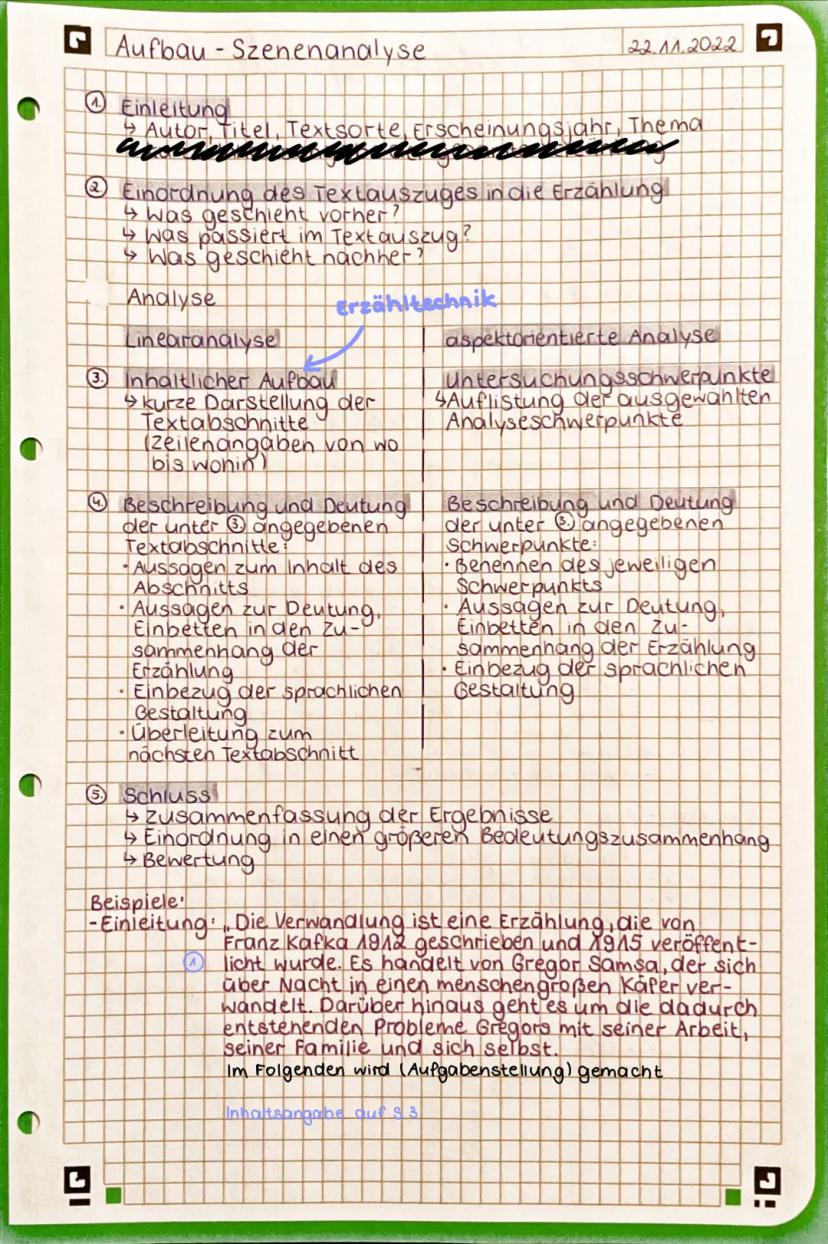 Aufbau - Szenenanalyse 22.11.2022
① Einleitung
↳ Autor, Titel, Textsorte, Erscheinungsjahr, Thema
② Einordnung des Textauszuges in die Erzählung
↳ Was geschieht vorher?
↳ Was passiert im Textauszug?
↳ Was geschieht nachher?
Analyse
Erzähltechnik
Linearanalyse
③ Inhaltlicher Aufbau
↳ kurze Darstellung der
Textabschnitte
(Zeilenangaben von wo
bis wohin)
④ Beschreibung und Deutung
der unter ③ angegebenen
Textabschnitte:
· Aussagen zum Inhalt des
Abschnitts
· Aussagen zur Deutung,
Einbetten in den Zu-
sammenhang der
Erzählung
· Einbezug der sprachlichen
Gestaltung
· Überleitung zum
nächsten Textabschnitt
aspektorientierte Analyse
Untersuchungsschwerpunkte
↳ Auflistung der ausgewählten
Analyseschwerpunkte
Beschreibung und Deutung
der unter ③ angegebenen
Schwerpunkte:
· Benennen des jeweiligen
Schwerpunkts
· Aussagen zur Deutung,
Einbetten in den Zu-
sammenhang der Erzählung
· Einbezug der sprachlichen
Gestaltung
⑤ Schluss
↳ Zusammenfassung der Ergebnisse
↳ Einordnung in einen größeren Bedeutungszusammenhang
↳ Bewertung
Beispiele:
- Einleitung: „Die Verwandlung ist eine Erzählung, die von
Franz Kafka 1912 geschrieben und 1915 veröffent-
① licht wurde. Es handelt von Gregor Samsa, der sich
über Nacht in einen menschengroßen Käfer ver-
wandelt. Darüber hinaus geht es um die dadurch
entstehenden Probleme Gregors mit seiner Arbeit,
seiner Familie und sich selbst.
Im Folgenden wird (Aufgabenstellung) gemacht
Inhaltsangabe auf S 3